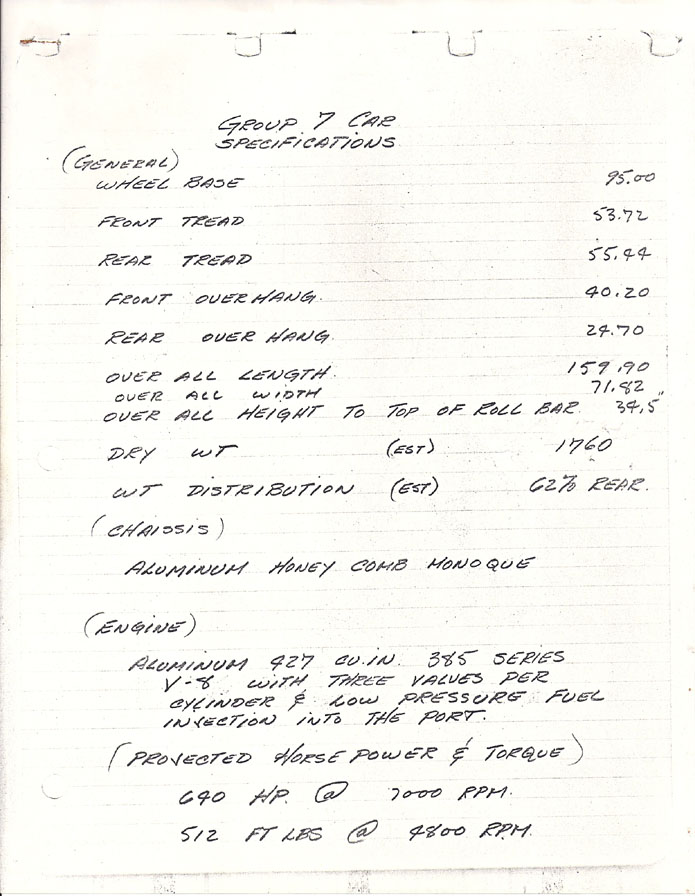 GROUP 7 CAR
SPECIFICATIONS
(GENERAL)
WHEEL BASE 95.00
FRONT TREAD 53.72
REAR TREAD 55.44
FRONT OVER HANG. 40.20
REAR OVER HANG. 24.70
OVER ALL LENGTH. 159.90
OVER ALL WIDTH 71.82
OVER ALL HEIGHT TO TOP OF ROLL BAR. 34.5"
DRY WT (EST) 1760
WT DISTRIBUTION (EST) 62% REAR.
(CHAISSIS)
ALUMINUM HONEY COMB MONOQUE
(ENGINE)
ALUMINUM 427 CU.IN. 385 SERIES
V-8 WITH THREE VALUES PER
CYLINDER & LOW PRESSURE FUEL
INJECTION INTO THE PORT.
(PROJECTED HORSE POWER & TORQUE)
640 HP. @ 7000 RPM.
512 FT LBS @ 4800 RPM.